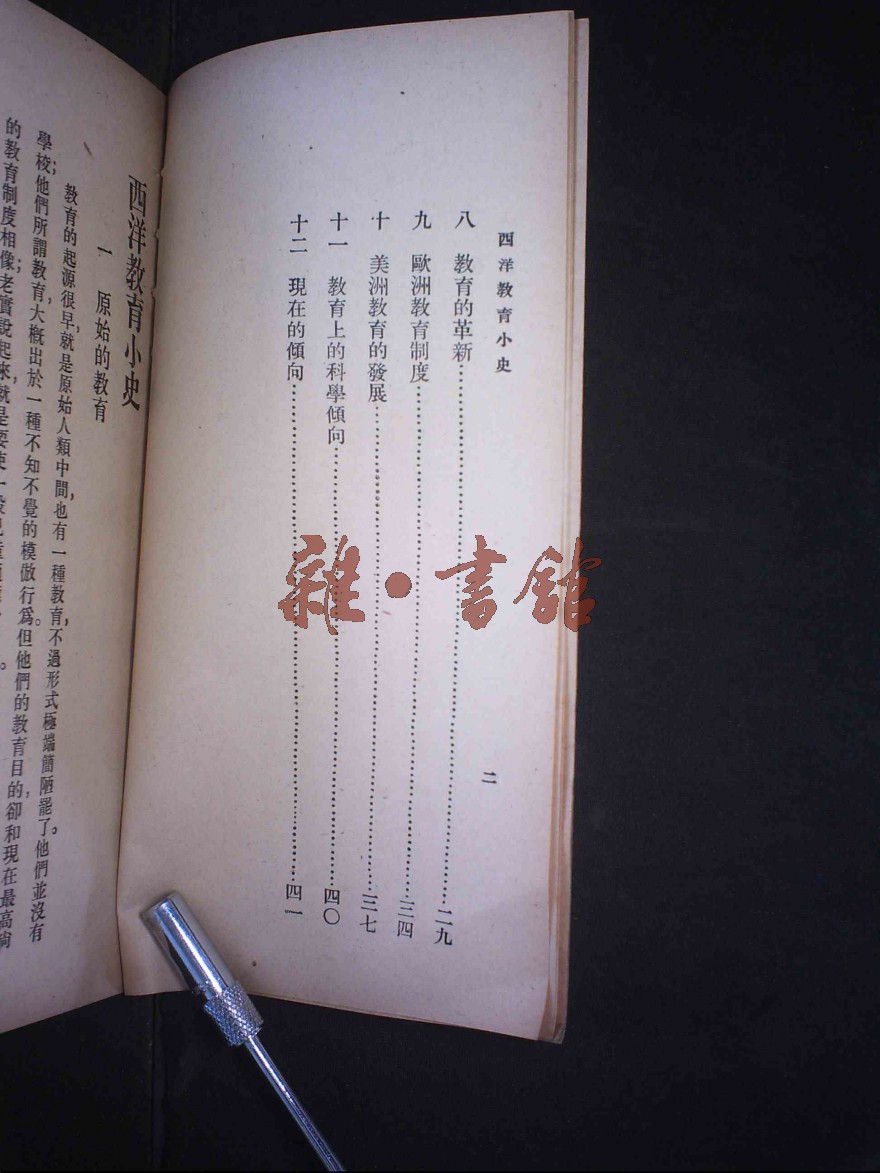 西洋教育小史
二
八　教育的革新……二九
九　歐洲教育制度……三四
十　美洲教育的發展……三七
十一　教育上的科學傾向……四〇
十二　現在的傾向……四一
雜·書館
西洋教育小史
一　原始的教育
教育的起源很早，就是原始人類中間，也有一種教育，不過形式極端簡陋罷了。他們並沒有
學校；他們所謂教育，大概出於一種不知不覺的模倣行爲。但他們的教育目的，卻和現在最高尚
的教育制度相像；老實說起來，就是要使一般兒童